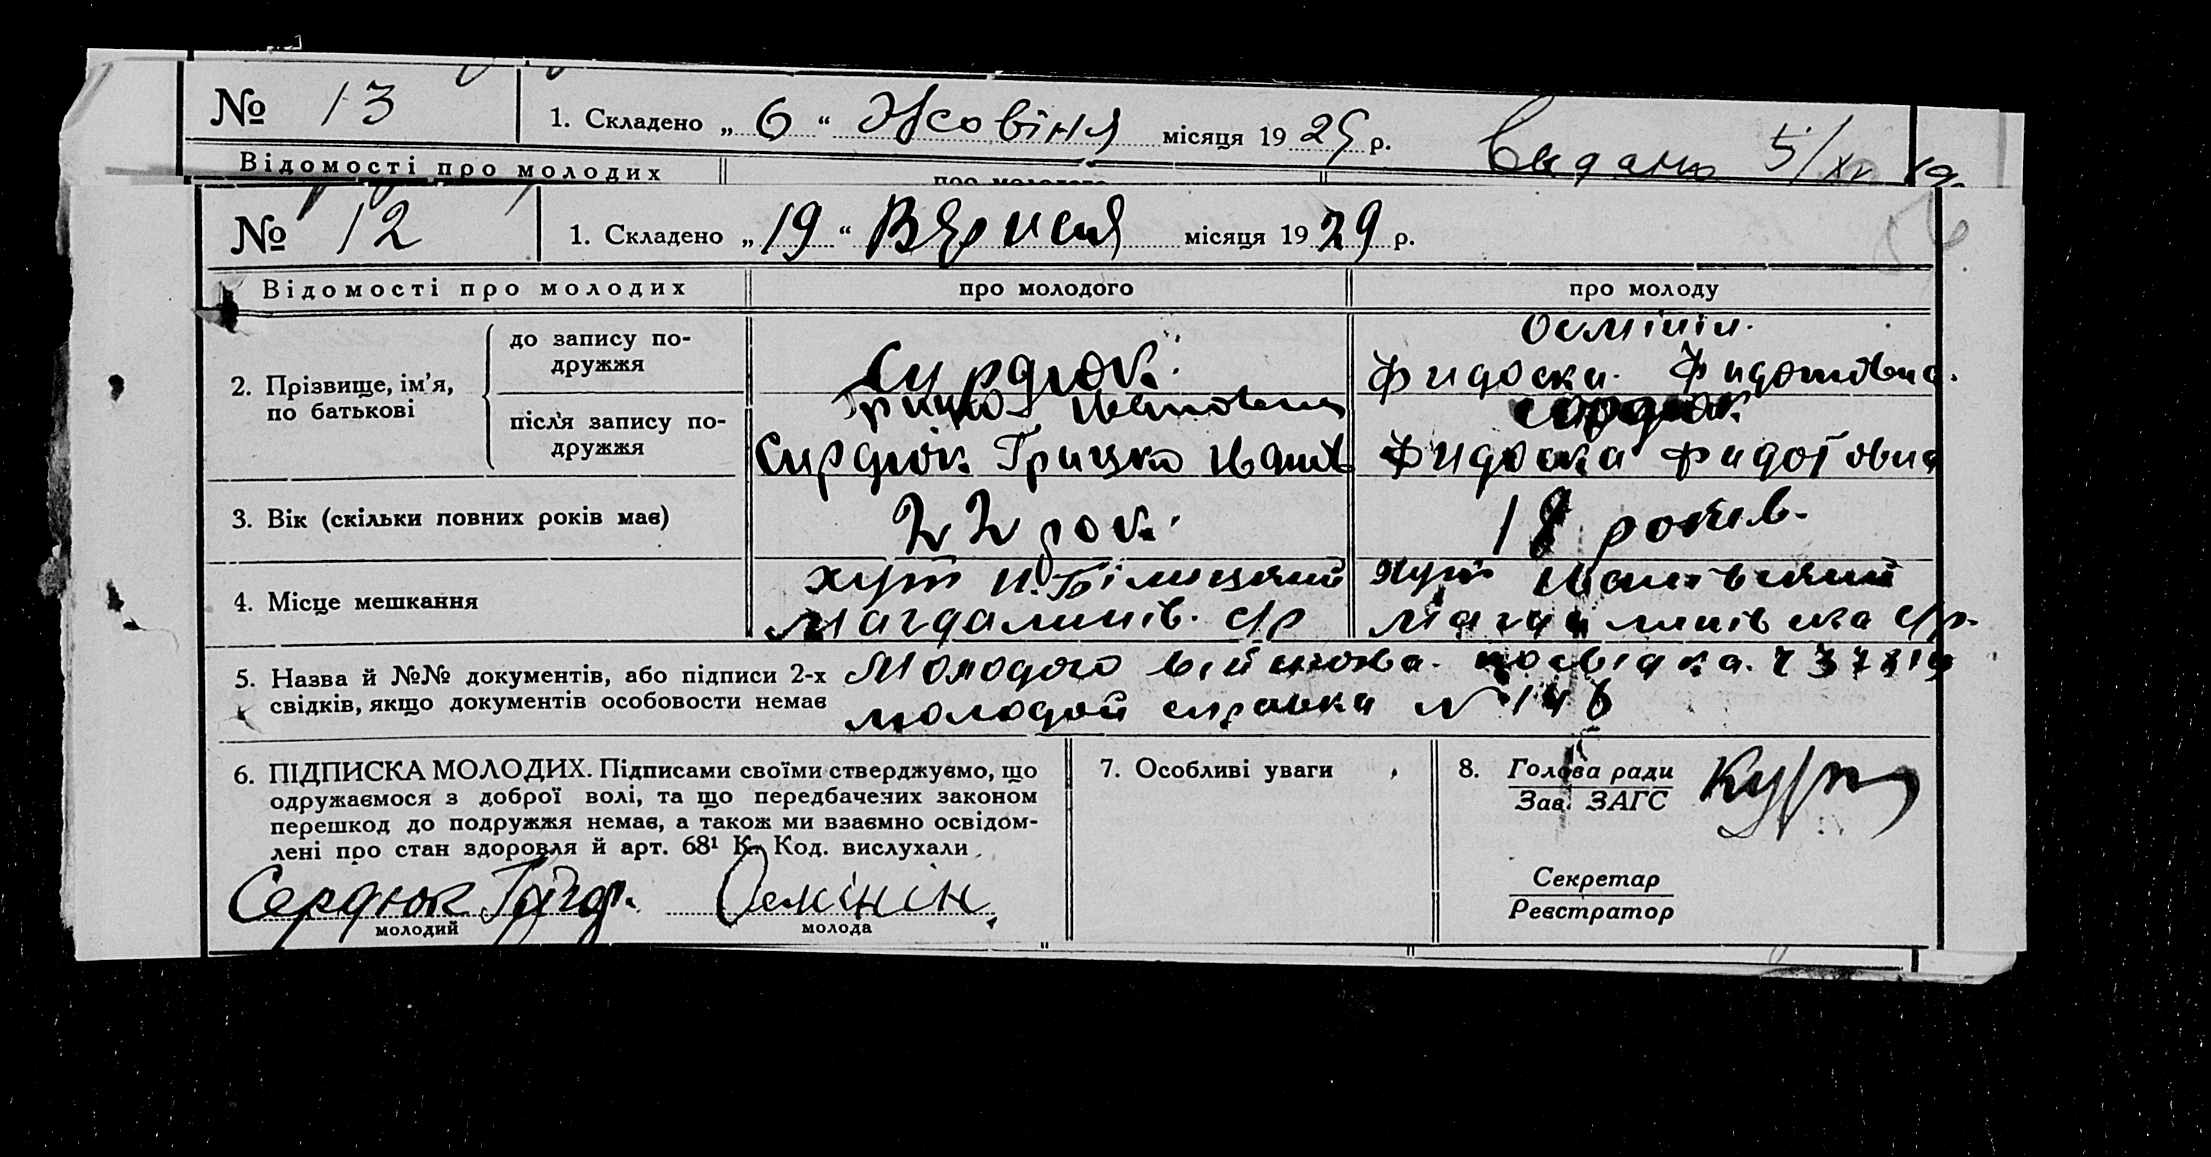 № 13 1. Складено „ 6 “ Жовтня місяця 19 29 р. Видано 5/XII
Відомості про молодих
№ 12 1. Складено „ 19 “ Верисня місяця 19 29 р.
Відомості про молодих про молодого про молоду
2. Прізвище, ім’я, по батькові
до запису подружжя
Сирдюк.
Грицко Иванович
Осмінін.
Фидоска. Фидотовна.
після запису подружжя
Сирдюк Грицко Иванов
Сирдюк
Фидоска Фидотовна
3. Вік (скільки повних років має) 22 рок. 18 років.
4. Місце мешкання
хут И. Білицкий
Магдалинів. с/р
Хут Иванівский
Магдалинівска с/р.
5. Назва й №№ документів, або підписи 2-х
свідків, якщо документів особовости немає
Молодого війскова. посвідка.
молодой справка № 146
6. ПІДПИСКА МОЛОДИХ. Підписами своїми стверджуємо, що
одружаємося з доброї волі, та що передбачених законом
перешкод до подружжя немає, а також ми взаємно освідом-
лені про стан здоровля й арт. 68¹ К. Код. вислухали
Сердюк Григ.
молодий
Осмінін
молода
7. Особливі уваги
8. Голова ради
Зав. ЗАГС
Секретар
Реєстратор